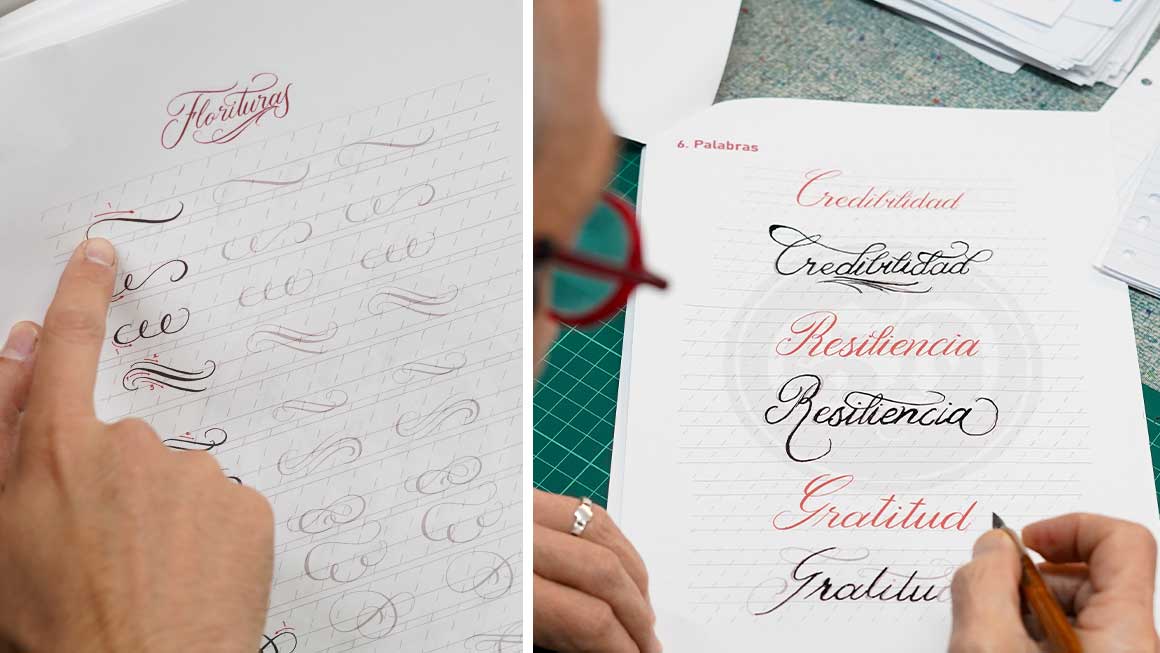 Florituras
6. Palabras
Credibilidad
Credibilidad
Resiliencia
Resiliencia
Gratitud
Gratitu